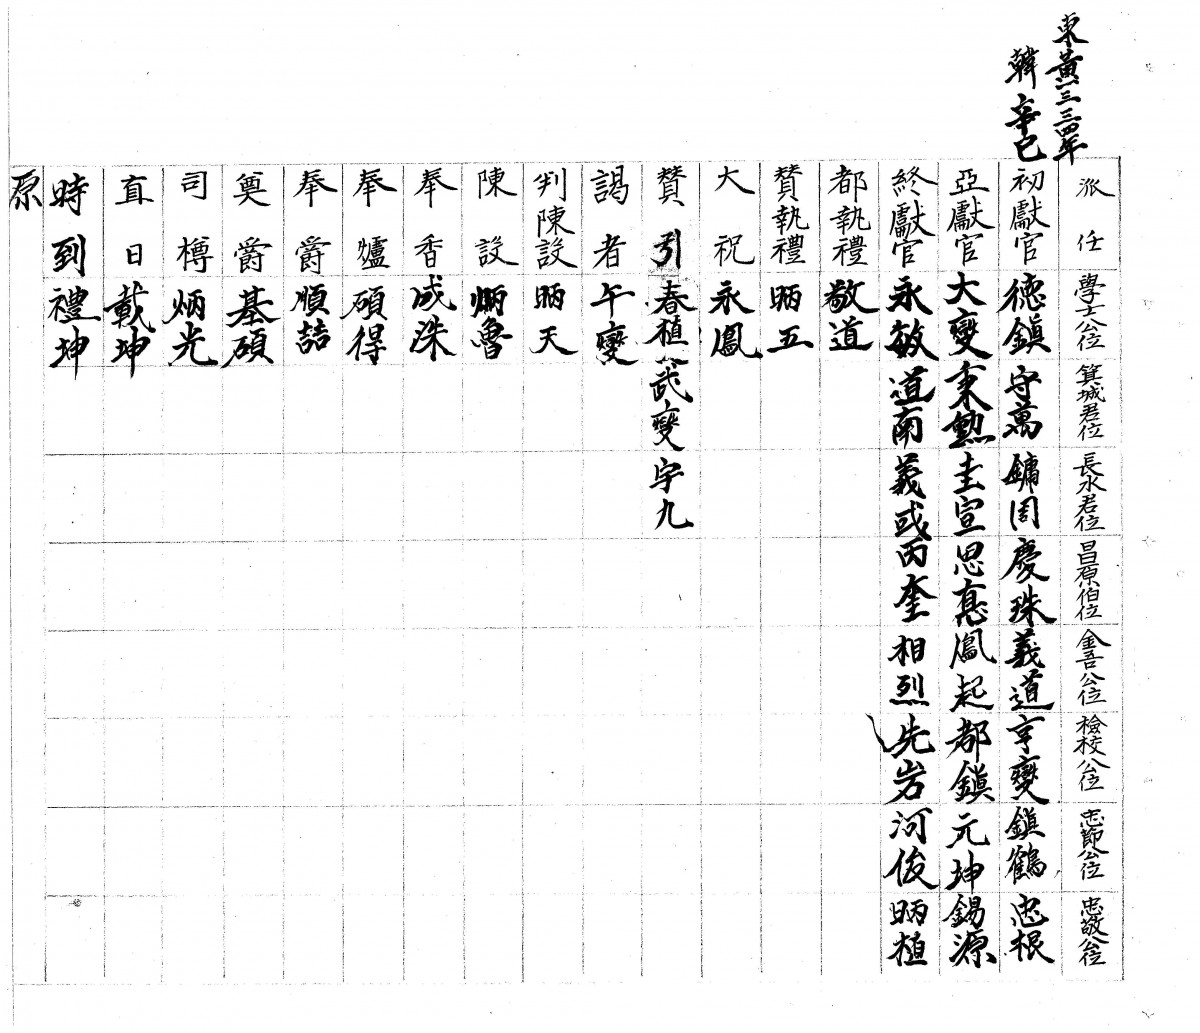 東黃三三四年
韓辛巳
派任 學士公位 箕城君位 長水君位 昌原伯位 金吾公位 檢校公位 忠節公位 忠敬公位
初獻官 德鎭 守萬 鏞周 慶珠 義道 亨燮 鎭鶴 忠根
亞獻官 大燮 秉勲 圭宣 思憙 鳳起 都鎭 元坤 錫源
終獻官 永敏 道南 義或 丙奎 相烈 先岩 河俊 昞植
都執禮 敬道
贊執禮 昞五
大祝 永鳳
贊引 春植 武燮 宇九
謁者 午燮
判陳設 昞天
陳設 炳魯
奉香 成洙
奉爐 碩得
奉爵 順喆
奠爵 基碩
司樽 炳光
直日 載坤
時到 禮坤
原